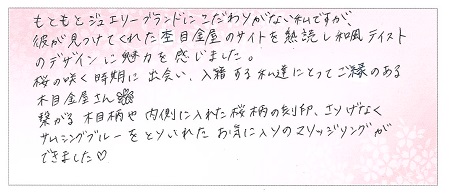 もともとジュエリーブランドにこだわりがない私ですが、
彼が見つけてくれた杢目金屋のサイトを熟読し和風テイスト
のデザインに魅力を感じました。
桜の咲く時期に出会い、入籍する私達にとってご縁のある
木目金屋さん
繋がる木目柄や内側に入れた桜柄の刻印、さりげなく
サムシングブルーをとりいれたお気に入りのマリッジリングが
できました♡